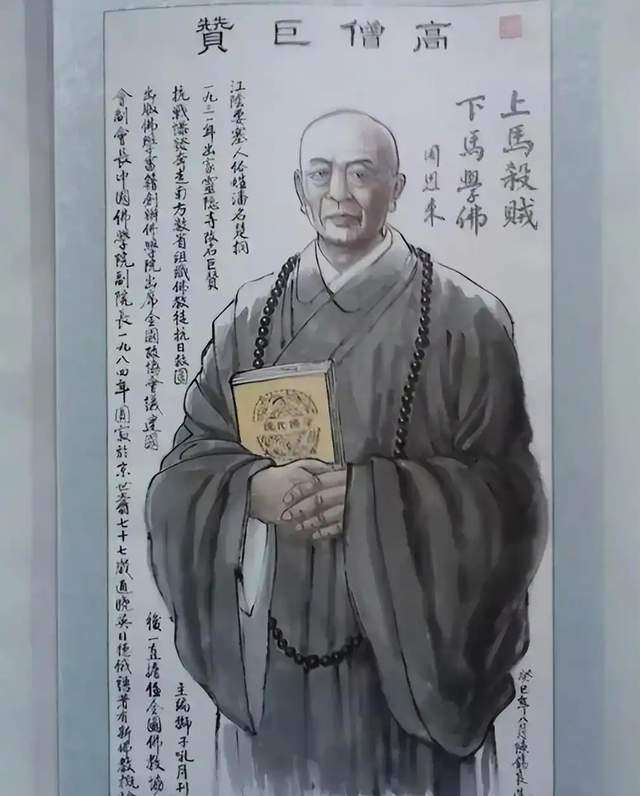 高僧巨贊
上馬殺賊
下馬學佛
周恩來
江陰要塞人俗姓潘名楚桐
一九三一年出家靈隱寺改名巨贊
抗戰奔走南方數省組織佛教徒抗日救國主編獅子吼月刊
出版佛學書籍創辦佛學院出席全國政協會議建國後一直擔任全國佛教協
會副會長中國佛學院副院長一九八四年圓寂於京世壽七十七歲通曉英日德俄語著有新佛教概論
現代佛學
癸巳年八月陳錫良